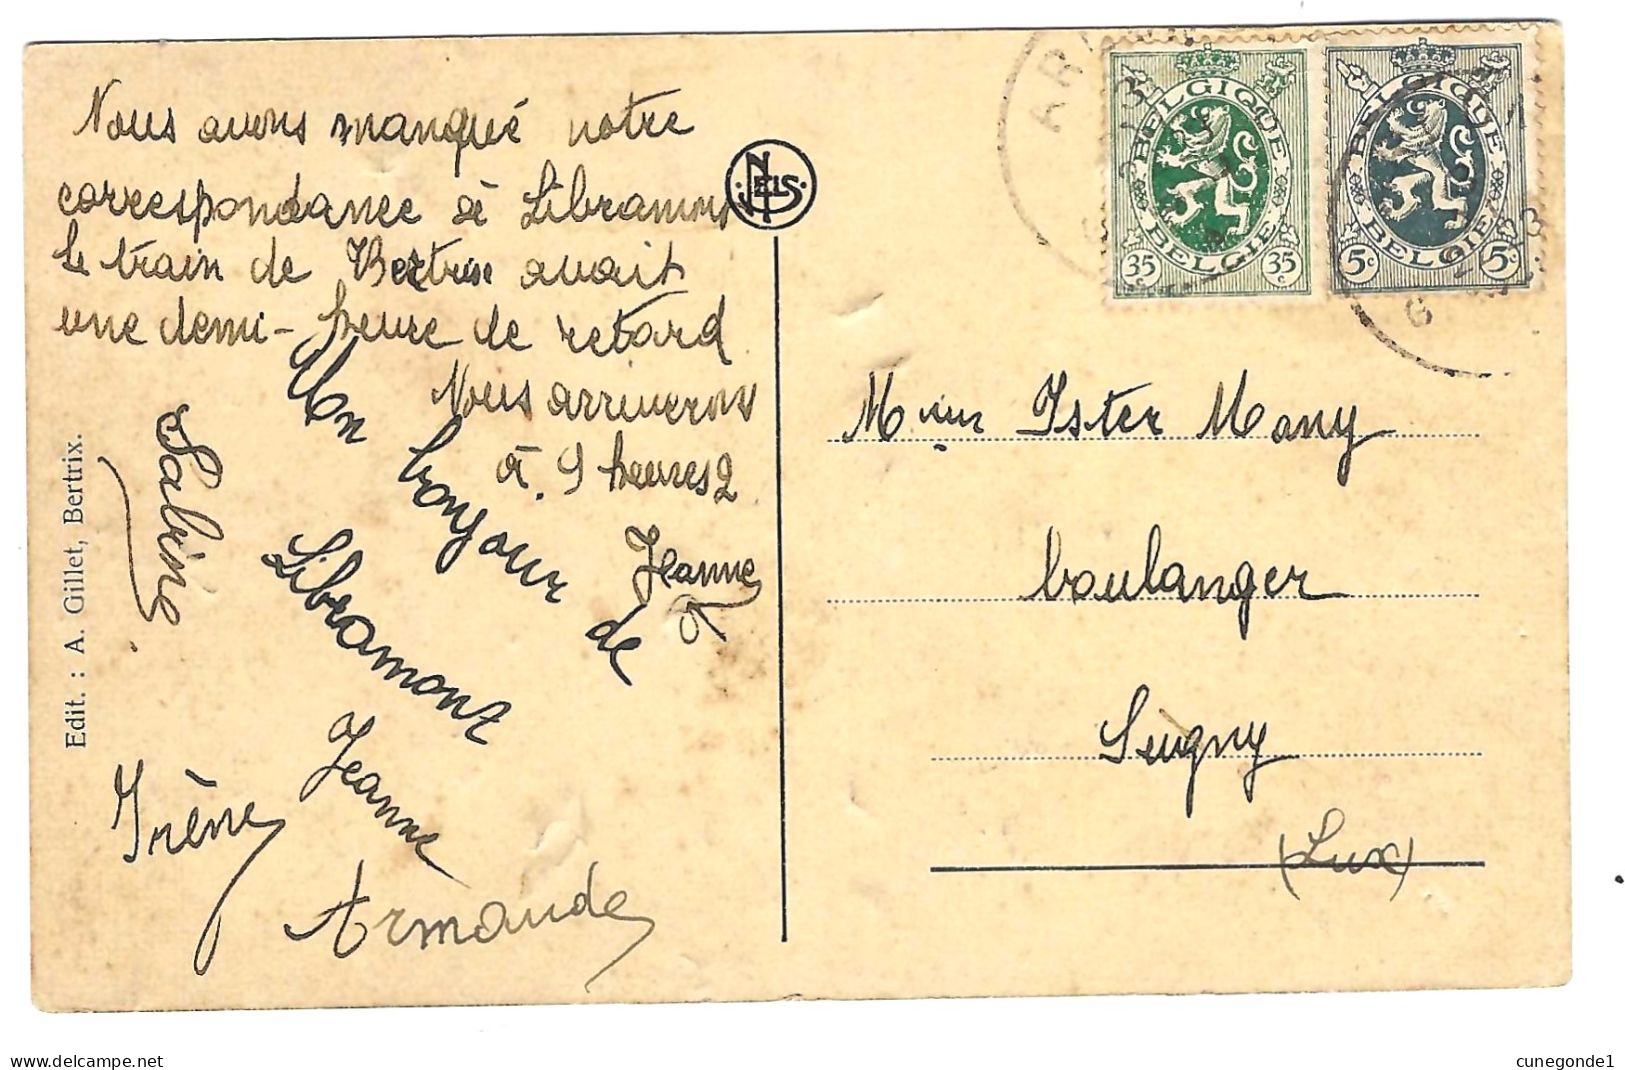 Nous avons manqué notre
correspondance à Libramont
le train de Bertrix avait
une demi-heure de retard
Nous arriverons
à 9 heures 2
Jeanne
Un bonjour de
Libramont
Jeanne
Sabine
Irène
Armande
Edit. : A. Gillet, Bertrix.
NELS
BELGIQUE
BELGIE
35c
35c
BELGIQUE
BELGIE
5c
5c
Ister Many
boulanger
Sugny
(Lux)
delcampe.net
cunegonde1